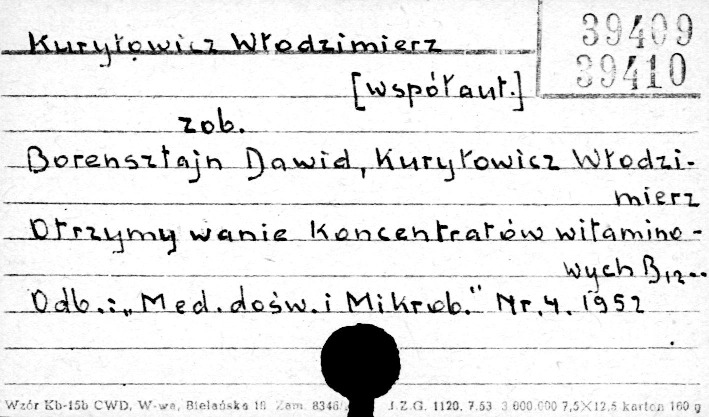 Kuryłowicz Włodzimierz
39409
39410
[współaut.]
zob.
Borensztajn Dawid, Kuryłowicz Włodzi-
mierz
Otrzymywanie koncentratów witamino-
wych B12..
Odb.: „Med. dośw. i Mikrob." Nr. 4. 1952
Wzór Kb-15b CWD, W-wa, Bielańska 18 Zam. 8346/ J.Z.G. 1120. 7.53 3 000.000 7,5×12,5 karton 160 g